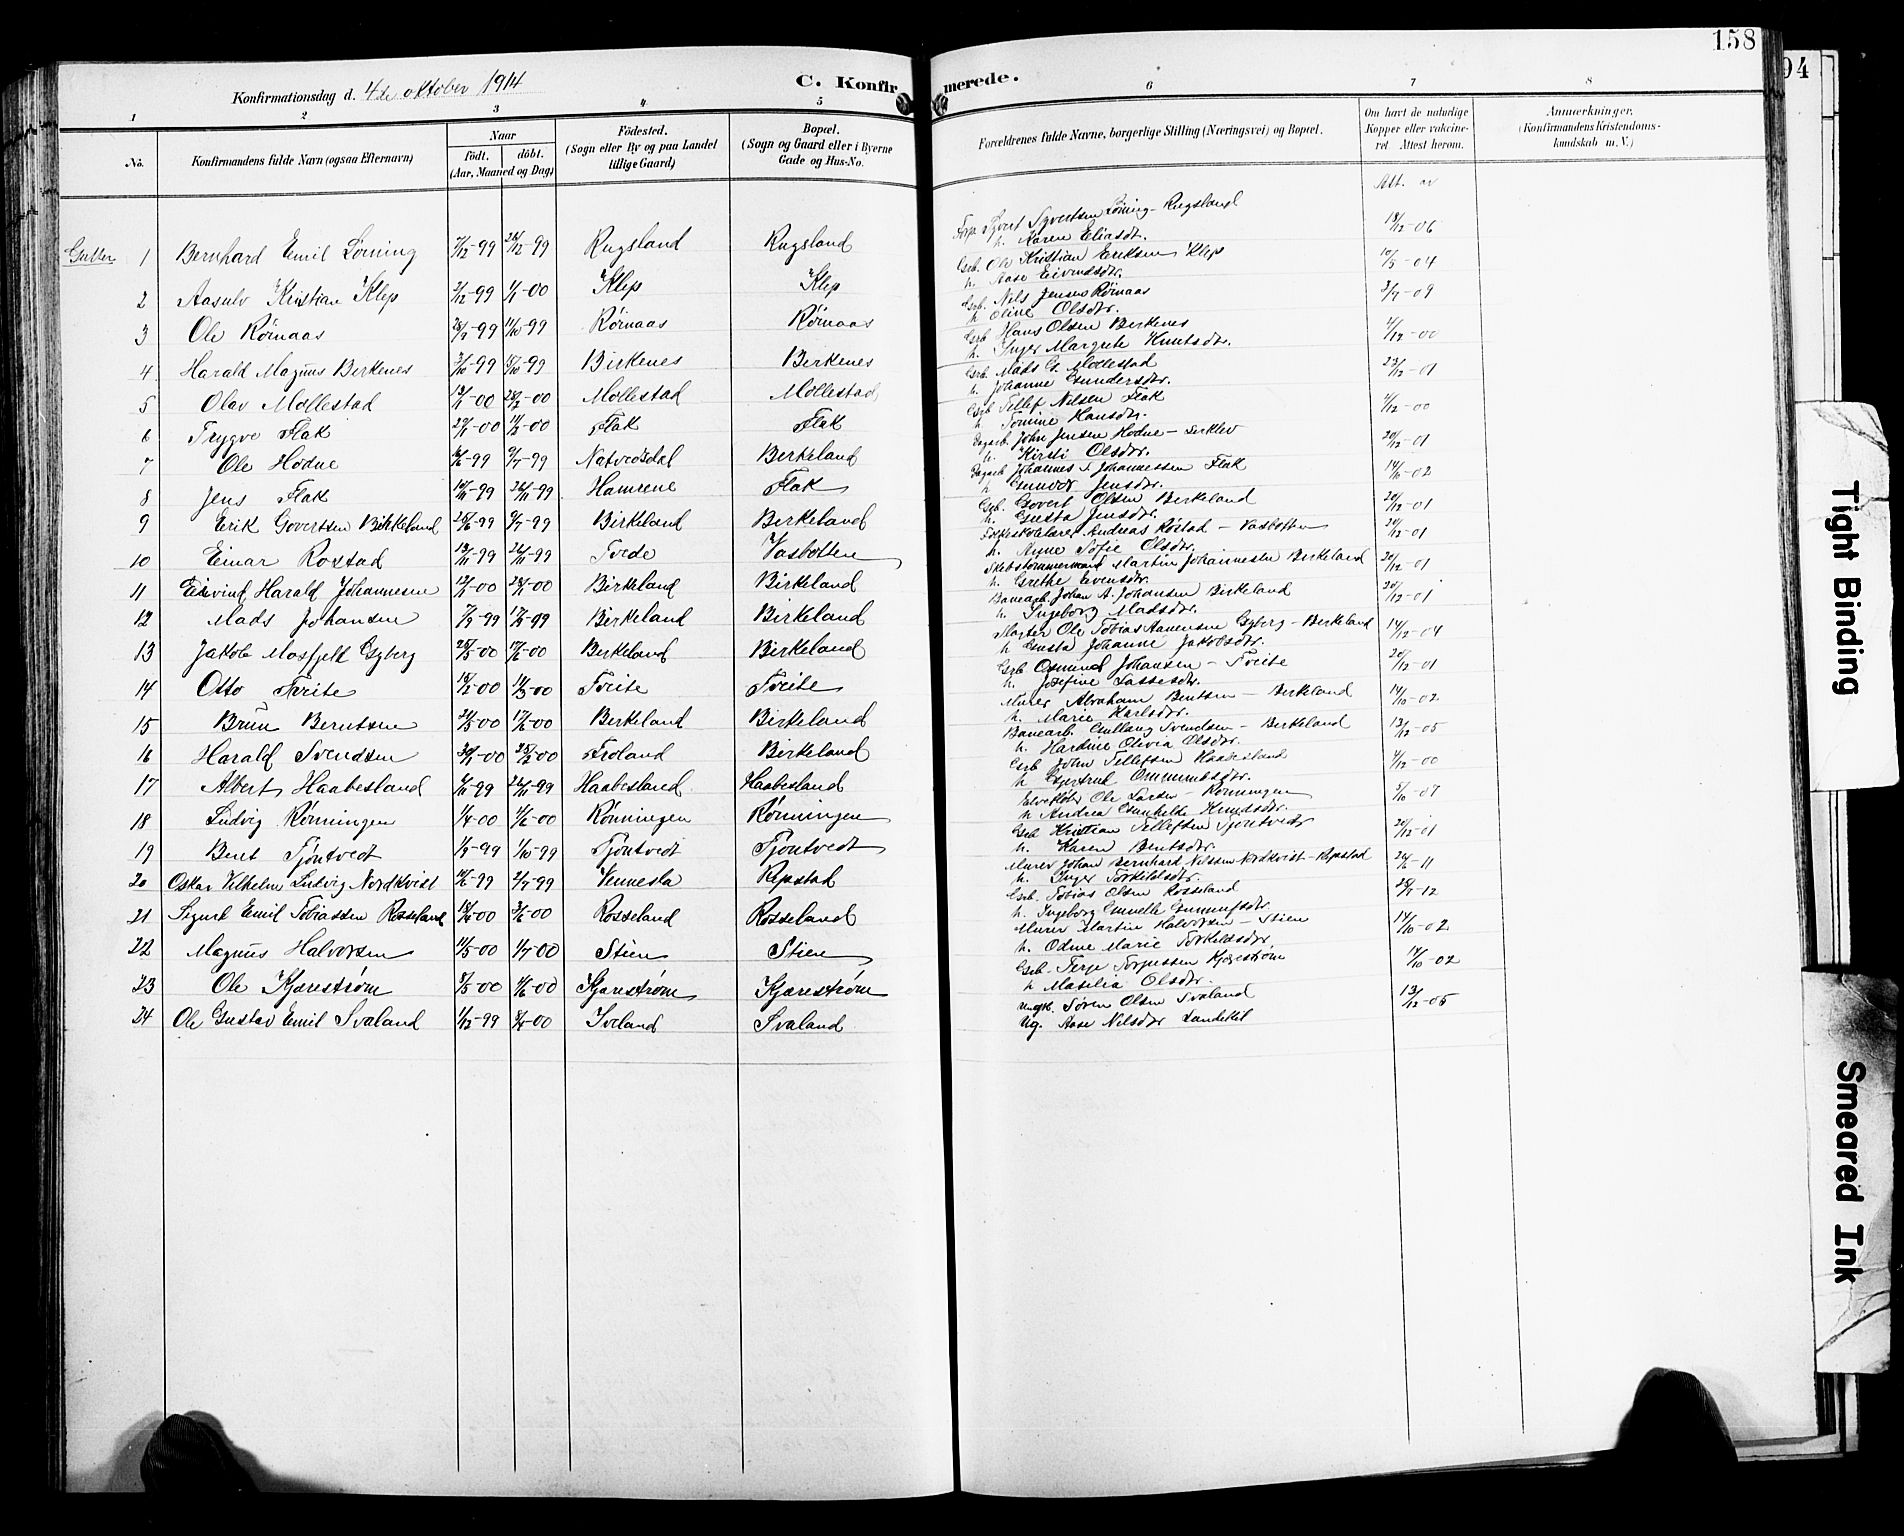 158
94
C. Konfirmerede.
Konfirmationsdag d. 4de oktober 1914
1 2 3 4 5 6 7 8
No.
Konfirmandens fulde Navn (ogsaa Efternavn)
Naar
födt. döbt.
(Aar, Maaned og Dag)
Födested.
(Sogn eller By og paa Landet
tillige Gaard)
Bopæl.
(Sogn og Gaard eller i Byerne
Gade og Hus-No.
Forældrenes fulde Navne, borgerlige Stilling (Næringsvei) og Bopæl.
Om havt de naturlige
Kopper eller vakcine-
ret Attest herom.
Anmærkninger.
(Konfirmandens Kristendoms-
kundskab m. V.)
Att. av
Gutter 1 Bernhard Emil Løining 7/12-99 26/12-99 Rugsland Rugsland Sivert Syvertsen Løining - Rugsland h. Karen Eliasdr. 18/12-06
2 Aasulv Kristian Klep 2/12-99 1/1-00 Klep Klep Grb. Ole Kristian Eriksen Klep h. Aase Eivindsdr. 10/5-04
3 Ole Rørnaas -99 11/10-99 Rørnaas Rørnaas Grb. Nils Jensen Rørnaas h Oline Olsdr. 3/7-09
4 Harald Magnus Berkenes 3/10-99 15/10-99 Birkenes Berkenes Grb Hans Olsen Berkenes h. Inger Margrete Knutsdr. 4/12-00
5 Olav Mollestad 13/1-00 -00 Mollestad Mollestad Grb. Mads G. Mollestad h. Johanne Gundersdr. 23/12-01
6 Trygve Flak 27/1-00 11/2-00 Flak Flak Grb Tellef Nilsen Flak h Tomine Hansdr. 4/12-00
7 Ole Hodne -99 9/7-99 Natvedsdal Berkeland Dagarb. John Jensen Hodne - h. Kirsti Olsdr. 20/12-01
8 Jens Flak 14/11-99 26/11-99 Hamrene Flak Dagarb Johannes Johannessen Flak h Gunvor Jensdr. -02
9 Erik Govertsen Birkeland 25/6-99 9/7-99 Birkeland Berkeland Grb. Govert Olsen Berkeland h. Gusta Jensdr. 20/12-01
10 Einar Rostad 13/11-99 26/11-99 Tvede Vasbotten Folkeskolelærer Andreas Rostad - Vasbotten h. Anne Sofie Olsdr. 20/12-01
11 Eivind Harald Johannesen -00 28/1-00 Birkeland Birkeland Skibstømmermand Martin Johannesen Berkeland h. Grethe Evensdr. 20/12-01
12 Mads Johansen 7/9-99 17/9-99 Berkeland Birkeland Banearb. Johan A. Johansen Birkeland h. Ingeborg Madsdr. 20/12-01
13 Jakob Mosfjell Gyberg 25/5-00 17/6-00 Berkeland Birkeland Ole Tobias Aanensen Gyberg - Berkeland h Gusta Johanne Jakobsdr. 14/12-04
14 Otto Tveite 18/2-00 11/3-00 Tveite Tveite Grb Osmund Johansen - Tveite h. Josefine Lassesdr. 20/12-01
15 Brün Berntsen 21/5-00 17/6-00 Berkeland Birkeland Murer Abraham Bentsen - Berkeland h. Marie Karlsdr. 14/10-02
16 Harald Svendsen 30/1-00 25/2-00 Froland Birkeland Banearb. Gullang Svendsen - Berkeland h. Hardine Olivia Olsdr. 13/12-05
17 Albert Haabesland -99 26/11-99 Haabesland Haabesland Grb John Tellefsen Haabesland h Gjertrud Ommundsdr. 4/12-00
18 Ludvig Rønningen 1/4-00 4/6-00 Rønningen Rønningen Ole Larsen - Rønningen h Andrea Gunhilde Knudsdr. 5/10-07
19 Bent Tjøntvedt 1/9-99 1/10-99 Tjøntvedt Tjøntvedt Grb Kristian Tellefsen Tjøntvedt h. Karen Bentsdr. 20/12-01
20 Oskar Vilhelm Ludvig Nordkvist -99 2/7-99 Vennesla Repstad Murer Johan Bernhard Nilssen Nordkvist - Repstad h. Inger Torkildsdr. -11
21 Sigurd Emil Tobiassen Rosseland -00 3/6-00 Rosseland Rosseland Grb. Tobias Olsen Rosseland h. Ingeborg Gunelle Gunnufsdr. -12
22 Magnus Halvorsen 11/5-00 1/7-00 Stien Stien Murer Martin Halvorsen - Stien h. Odine Marie Torkildsdr. 14/10-02
23 Ole Kjærestrøm -00 4/6-00 Kjærestrøm Kjærestrøm Grb. Terje Torjussen Kjærestrøm h Masilia Olsdr. 14/10-02
24 Ole Gustav Emil Svaland 1/12-99 -00 Iveland Svaland Ungk. Søren Olsen Svaland Ug. Aase Nilsdr Landekil 13/12-05
Tight Binding
Smeared Ink